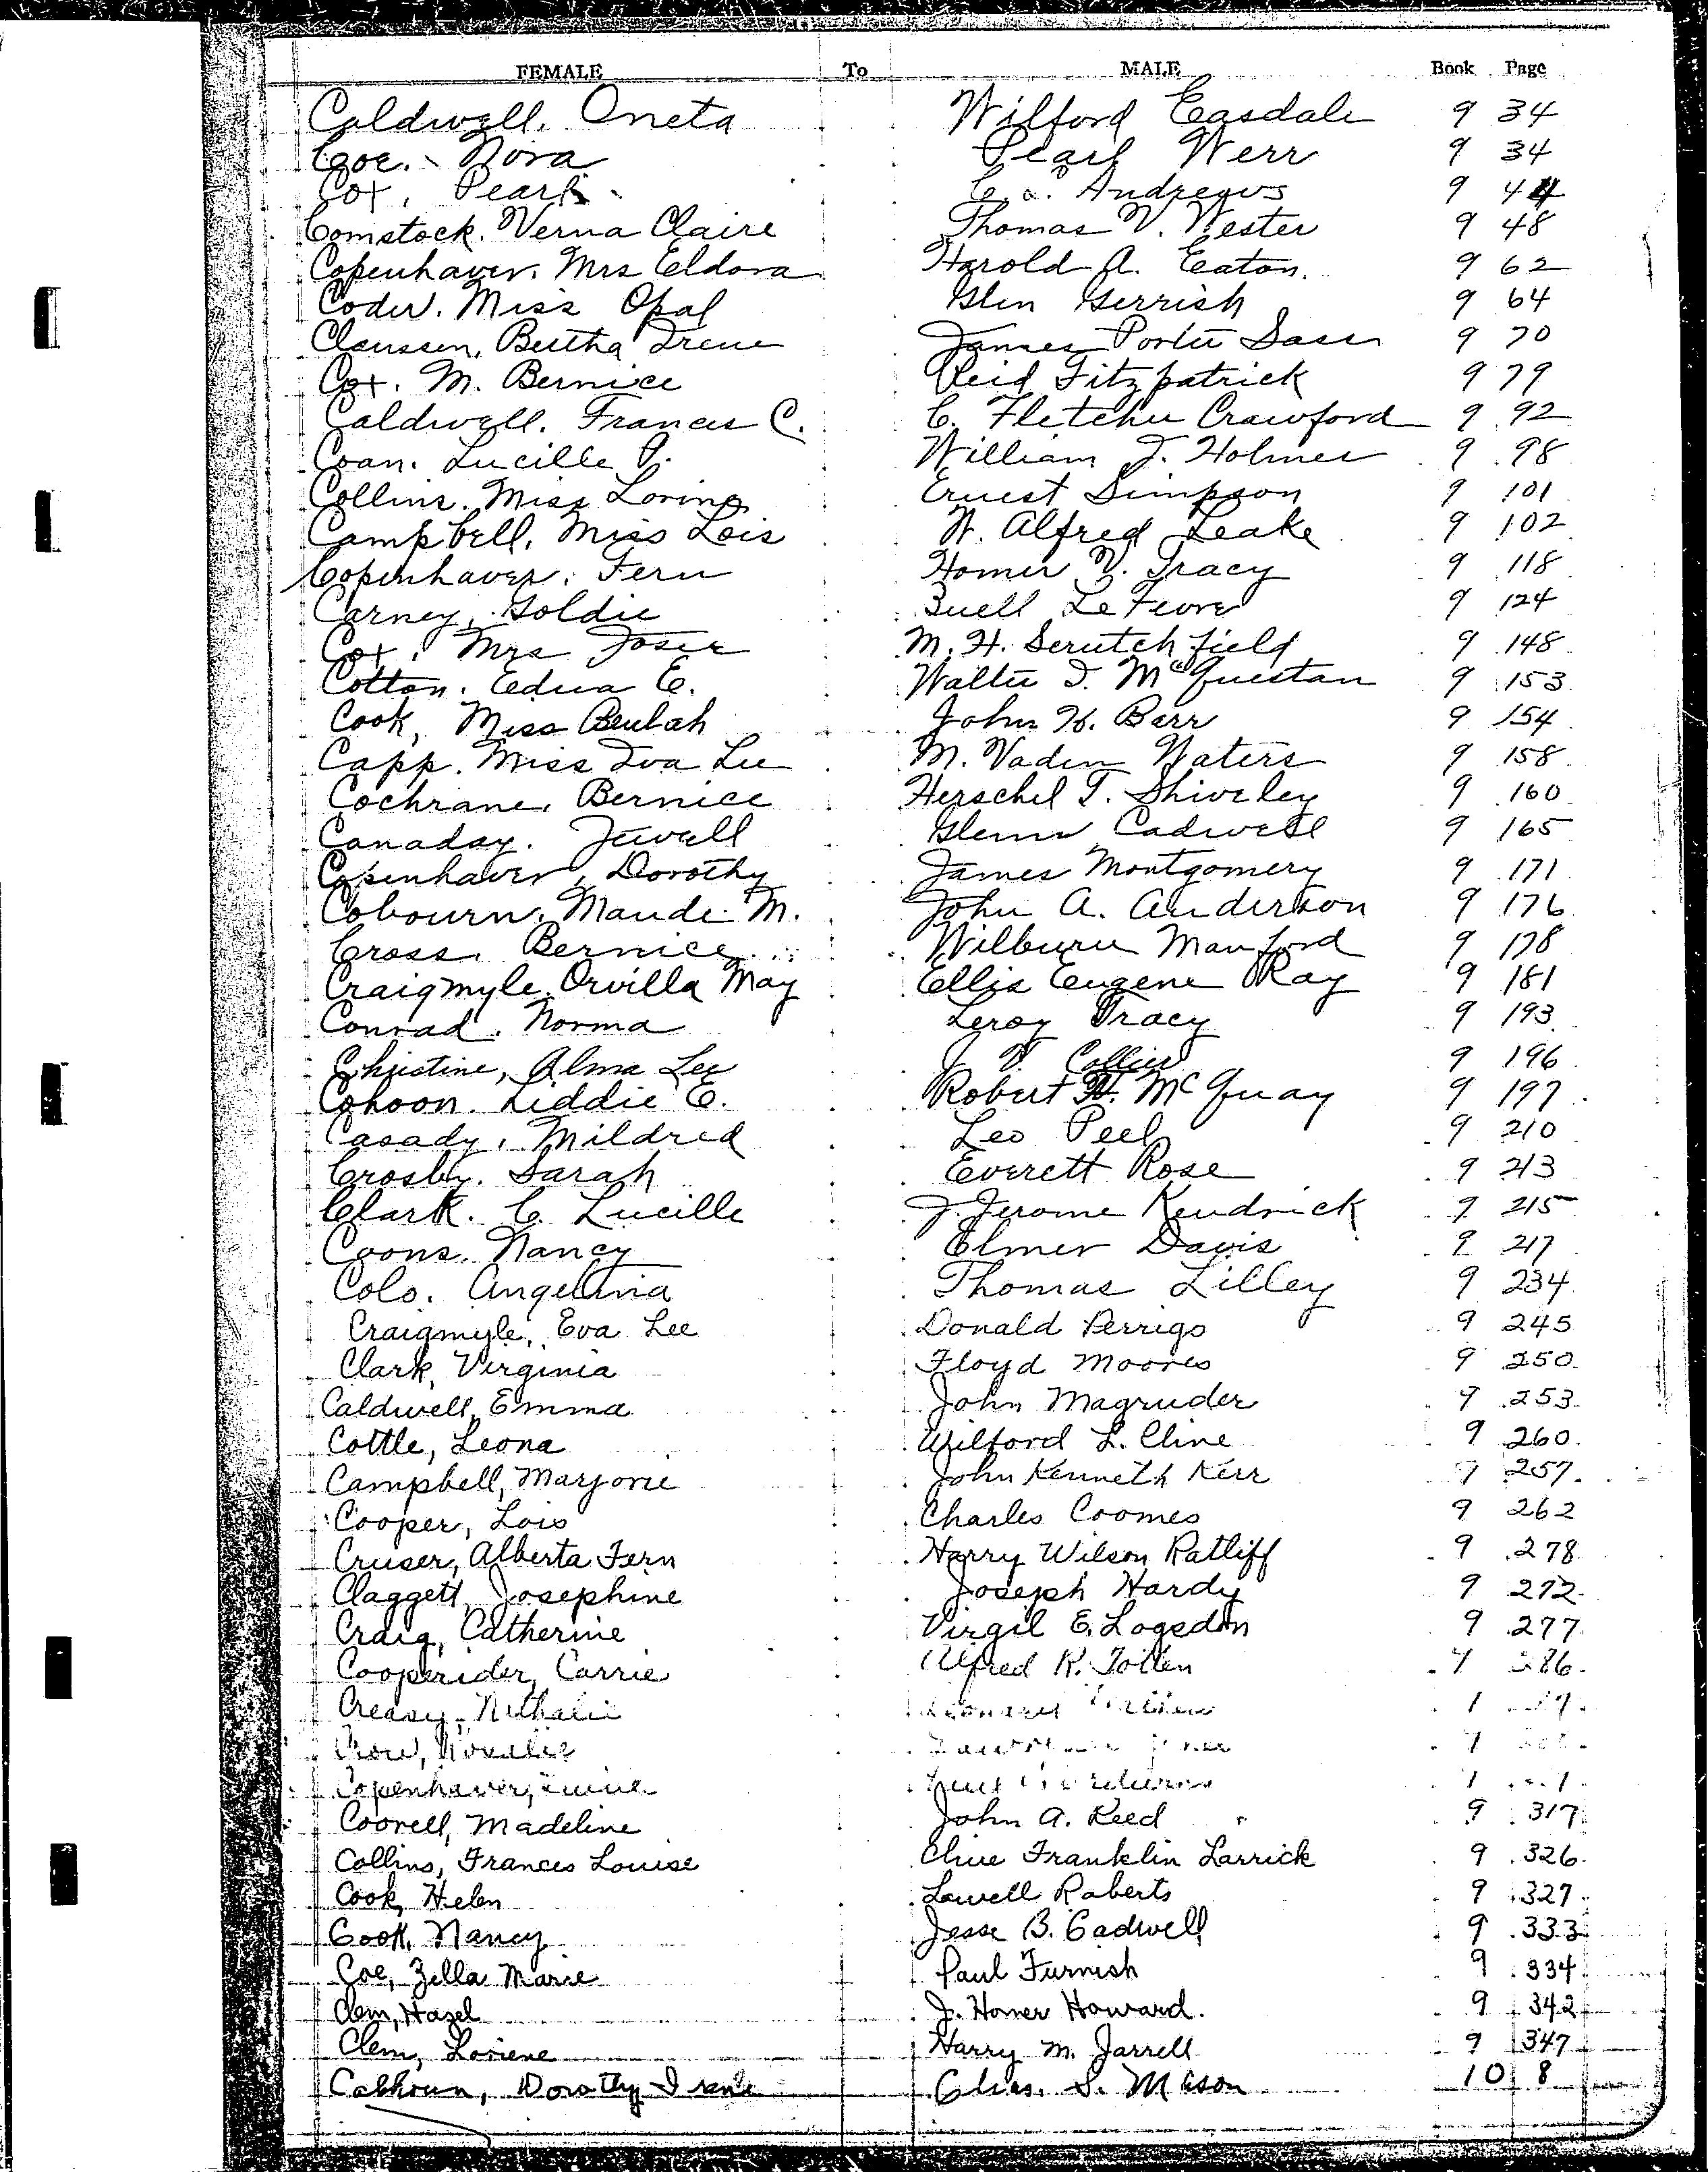 FEMALE To MALE Book Page
Caldwell, Oneta Wilford Easdale 9 34
Coe, Nora Pearl Werr 9 34
Cox, Pearl C. Andrews 9 44
Comstock, Verna Claire Thomas V. Wester 9 48
Copenhaver, Mrs Eldora Harold A. Eaton. 9 62
Coder, Miss Opal Glen Gerrish 9 64
Claussen, Bertha Irene James Porter Sass 9 70
Cox, M. Bernice Reid Fitzpatrick 9 79
Caldwell, Frances C. C. Fletcher Crawford 9 92
Coan, Lucille P. William J. Holmes 9 98
Collins, Miss Lorina Ernest Simpson 9 101
Campbell, Miss Lois W. Alfred Leake 9 102
Copenhaver, Fern Homer V. Tracy 9 118
Carney, Goldie Buell LeFevre 9 124
Cox, Mrs Josie M. H. Scrutchfield 9 148
Cotton, Edna E. Walter D. McQuestan 9 153
Cook, Miss Beulah John H. Barr 9 154
Capp, Miss Iva Lee M. Vaden Waters 9 158
Cochrane, Bernice Herschel T. Shiveley 9 160
Canaday, Jewell Glenn Cadwell 9 165
Copenhaver, Dorothy James Montgomery 9 171
Cobourn, Maude M. John A. Anderson 9 176
Cross, Bernice Wilburn Manford 9 178
Craigmyle, Orvilla May Ellis Eugene Ray 9 181
Conrad, Norma Leroy Tracy 9 193
Christine, Alma Lee J. Collier 9 196
Cohoon, Liddie E. Robert H. McQuay 9 197
Casady, Mildred Leo Peel 9 210
Crosby, Sarah Everett Rose 9 213
Clark, C. Lucille J. Jerome Kendrick 9 215
Coons, Nancy Elmer Davis 9 217
Colo, Angelina Thomas Lilley 9 234
Craigmyle, Eva Lee Donald Perrigo 9 245
Clark, Virginia Floyd Moores 9 250
Caldwell, Emma John Magruder 9 253
Cottle, Leona Wilford L. Cline 9 260
Campbell, Marjorie John Kenneth Kerr 9 257
Cooper, Lois Charles Coomes 9 262
Cruser, Alberta Fern Harry Wilson Ratliff 9 278
Claggett, Josephine Joseph Hardy 9 272
Craig, Catherine Virgil E. Logsdon 9 277
Cooperider, Carrie Alfred R. Totten 9 286
Creasy,
Crow,
Copenhaver,
Coovell, Madeline John A. Reed 9 317
Collins, Frances Louise Clive Franklin Larrick 9 326
Cook, Helen Lowell Roberts 9 327
Cook, Nancy Jesse B. Cadwell 9 333
Coe, Zella Marie Paul Furnish 9 334
Clem, Hazel J. Homer Howard. 9 342
Clem, Loriene Harry M. Jarrell 9 347
Calhoun, Dorothy Irene Chas. S. Mason 10 8